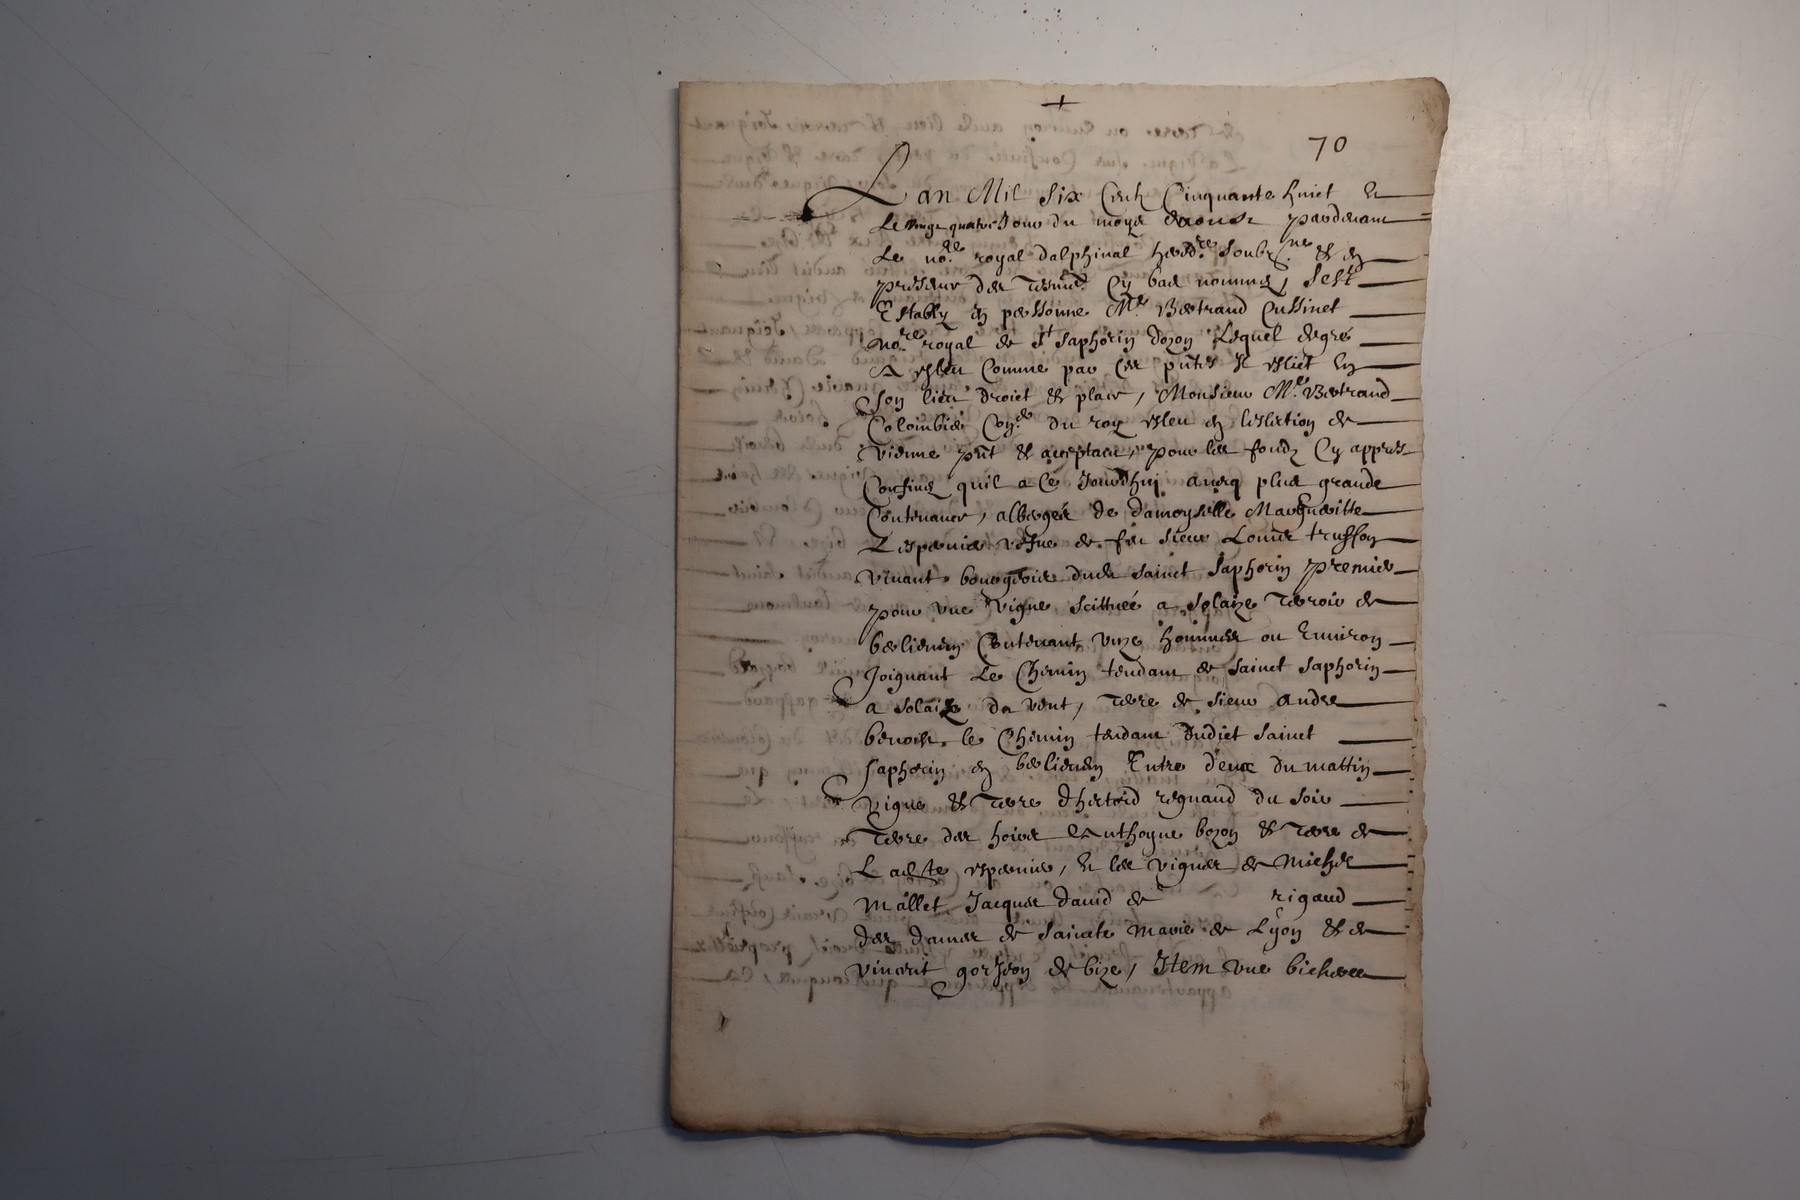 +
70
Lan Mil Six Cents Cinquante huict Et
Le vingt quatre Jour du moys daoust pardevant
Le no.re royal dalphinal hered.re soubz.ne Et en
presence des tesmo. Cy bas nommes, sest
Estably en personne M.e Bertrand Cussinet
no.re royal de St saphorin dozon Lequel de gre
A esleu Comme par ces pntes Il eslict En
Son lieu droict et place, Monsieur M.e Bertrand
Colombier Con.er du roy esleu en leslection de
vienne pnt et acceptant, pour les fondz Cy appres
Confines quil a Ce Jourdhuy avecq plus grande
Contenance, alberges de damoyselle Margueritte
Lespernier vefve de feu sieur Louis trusson
vivant bourgeois dudt sainct saphorin premier
pour une vigne scittuee a solaize terroir de
Contenant unze hommes ou Environ
Joignant Le Chemin tendant de sainct saphorin
a solaize du vent, terre de sieur andre
benoist, le Chemin tendant dudict sainct
saphorin en Entre deux du mattin
vigne et terre regnaud du soir
terre des hoirs dAnthoyne bozon et terre de
Ladte espernier, Et les vignes de michel
mallet Jacques david de rigaud
des dames de saincte marie de Lyon et de
vincent de bize, Item une bicheree